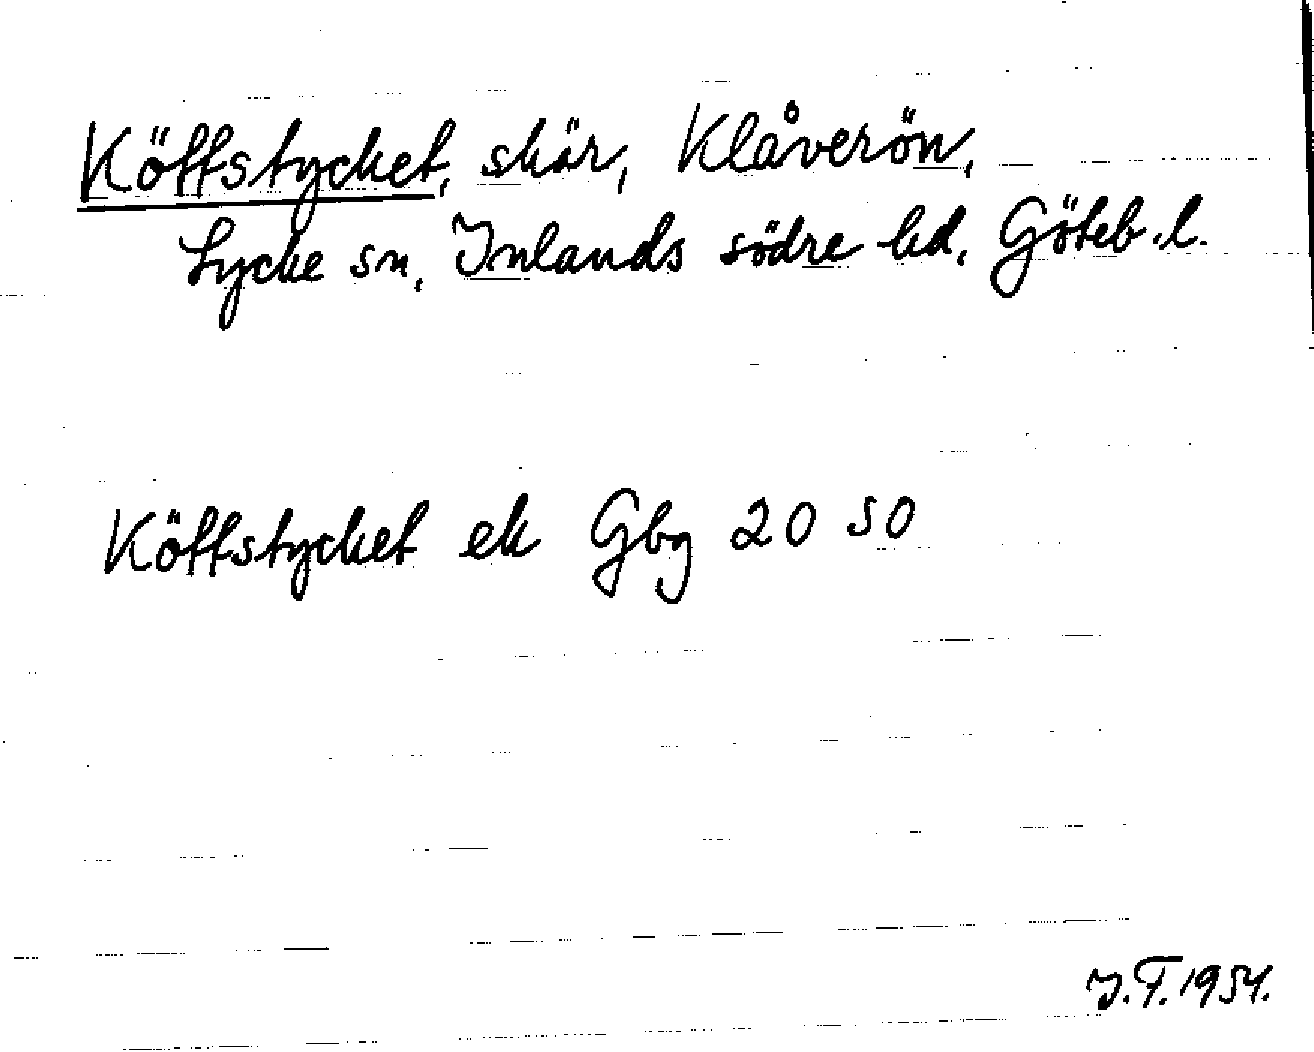 Köttstycket, skär, Klåverön,
Lycke sn, Inlands södre hd, Göteb.l.
Köttstycket ek Gbg 20 SO
J.F. 1954.